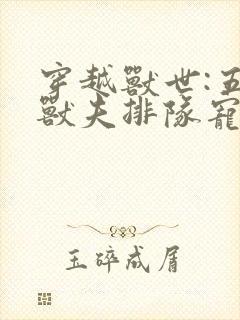 穿越獸世:五
獸夫排隊寵
玉碎成屑